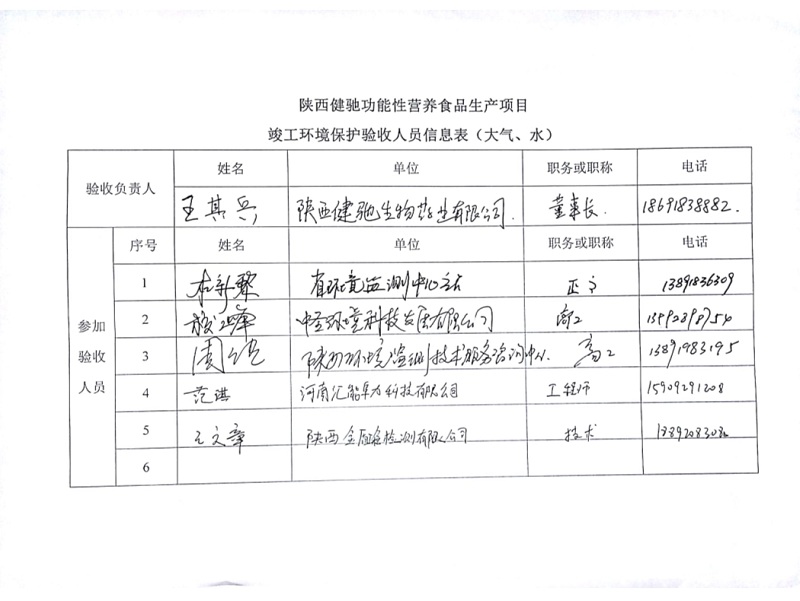 陕西健驰功能性营养食品生产项目
竣工环境保护验收人员信息表（大气、水）
验收负责人 姓名 单位 职务或职称 电话
王其兵 陕西健驰生物药业有限公司. 董事长. 18691838882.
参加验收人员 序号 姓名 单位 职务或职称 电话
1 杜新黎 省环境监测中心站 正高 13891836309
2 中圣环境科技发展有限公司 高工
3 陕西环境监测技术服务咨询中心. 高工 13891983195
4 范琪 河南汇能阜力科技有限公司 工程师 15909291208
5 王文章 陕西金盾检测有限公司 技术
6